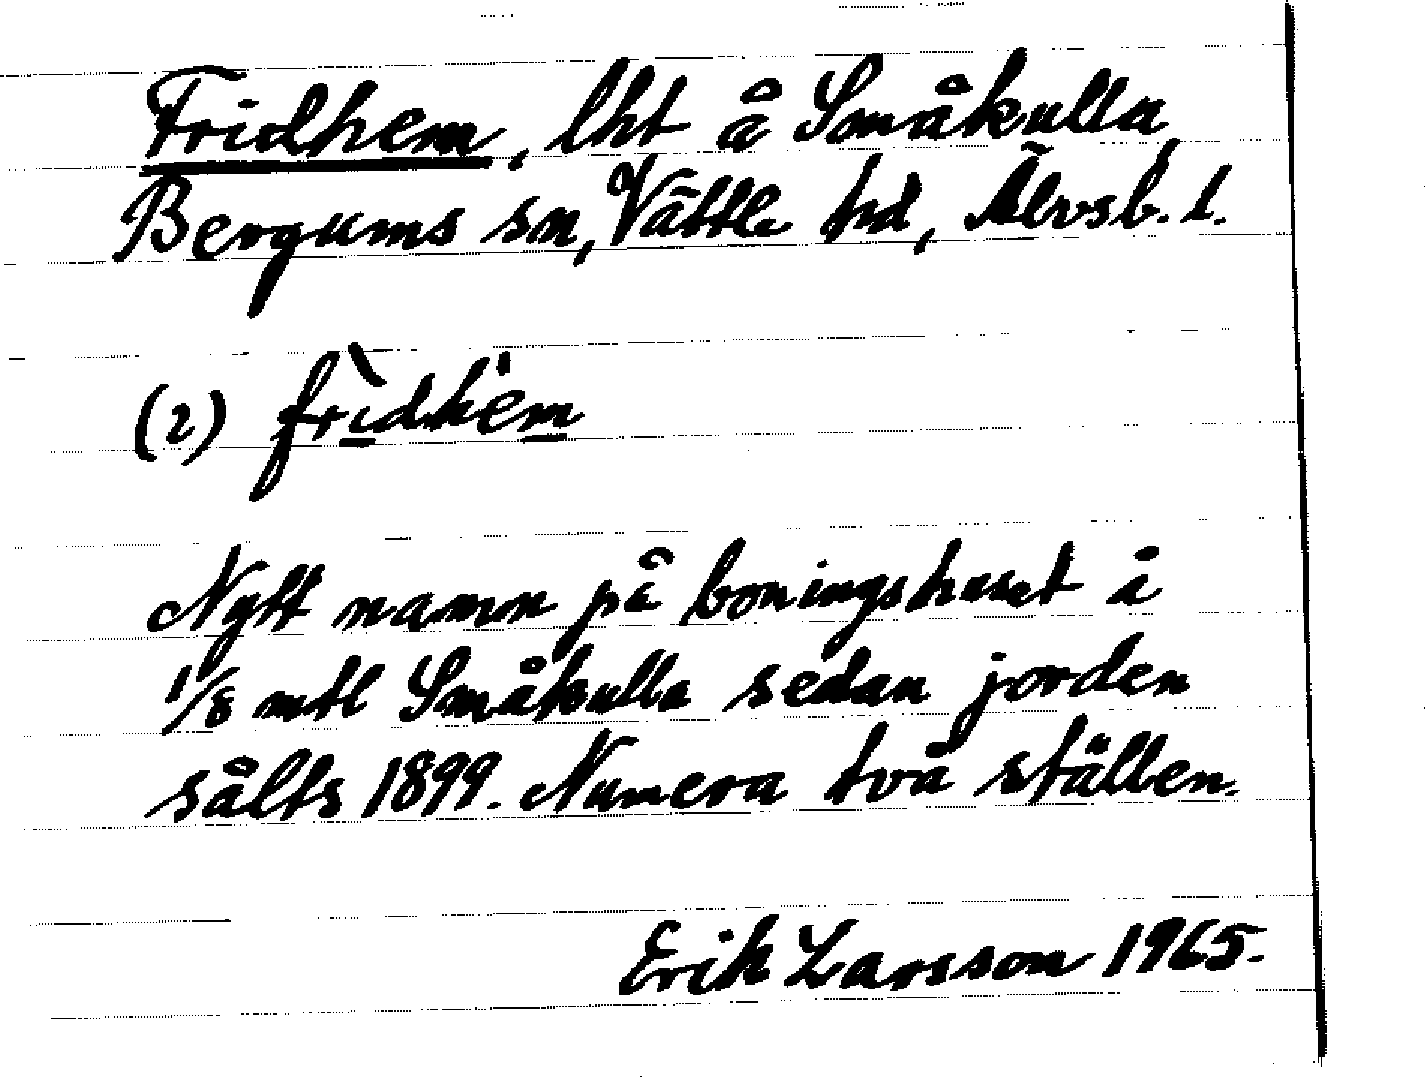 Fridhem, lht å Småkulla
Bergums sn, Vättle hd, Älvsb. l.
(2) frìdhem
Nytt namn på boningshuset å
1/8 mtl Småkulla sedan jorden
sålts 1899. Numera två ställen.
Erik Larsson 1965.